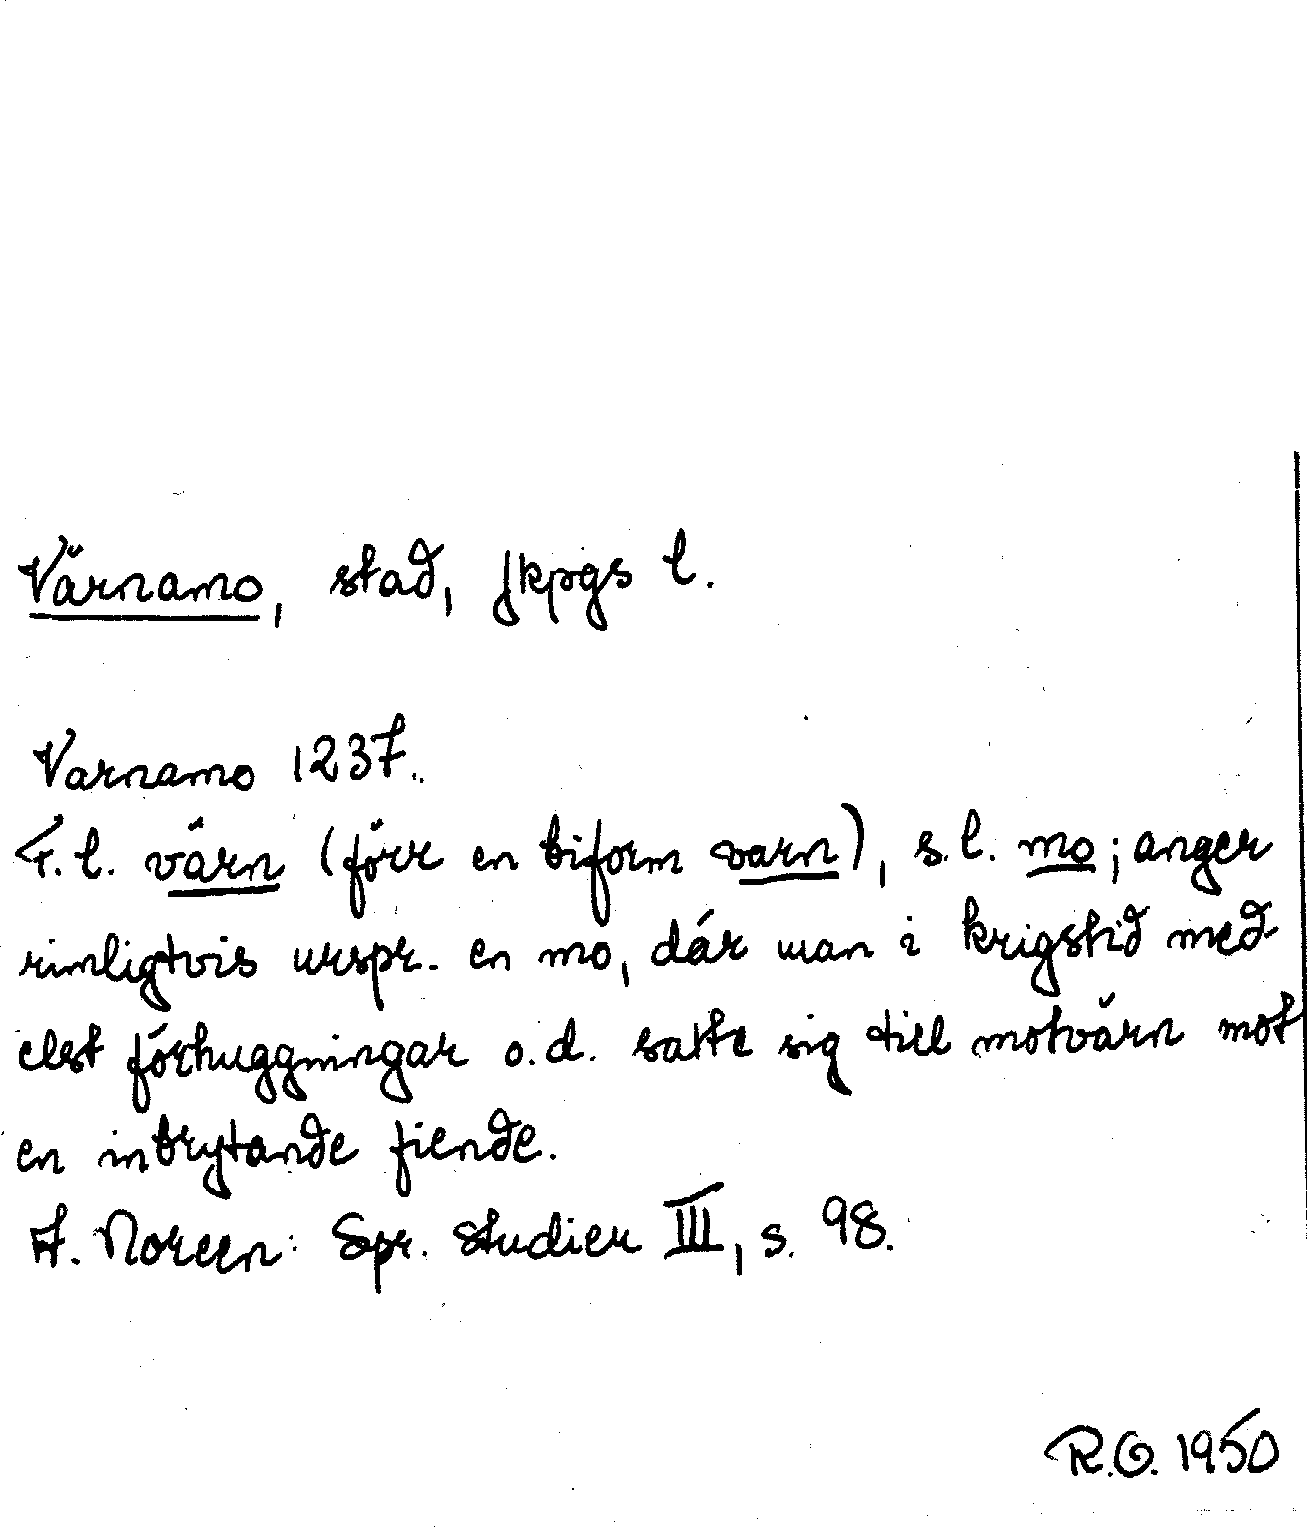 Värnamo, stad, Jkpgs l.
Varnamo 1237.
F.l. värn (förr en biform varn), s.l. mo; anger
rimligtvis urspr. en mo, där man i krigstid med-
elst förhuggningar o.d. satte sig till motvärn mot
en inbrytande fiende.
A. Noreen: Spr. studier III, s. 98.
R.G. 1950